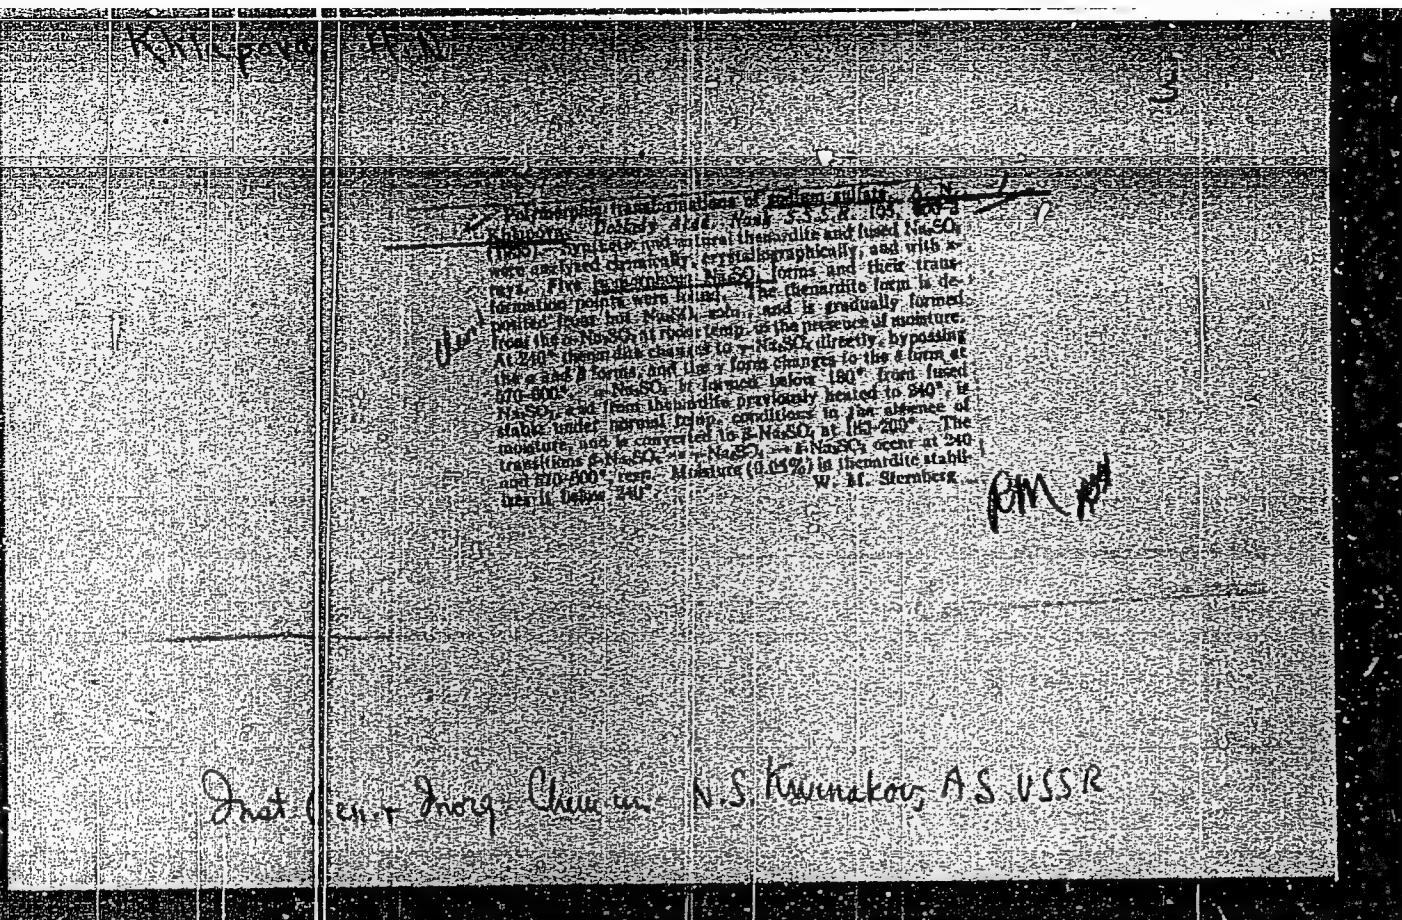 Khlapova, A.N.
Polymorphic transformations of sodium sulfate. A. N.
Khlapova. Doklady Akad. Nauk S.S.S.R. 105, 500-3
(1955).—Synthetic and natural thenardite and fused Na₂SO₄
were analyzed chemically, crystallographically, and with x-
rays. Five Na₂SO₄ forms and their trans-
formation points were found. The thenardite form is de-
posited from hot Na₂SO₄ soln., and is gradually formed
from the α-Na₂SO₄ at room temp. in the presence of moisture.
At 240° thenardite changes to γ-Na₂SO₄ directly, bypassing
the α and β forms, and the γ form changes to the δ form at
570-600°. α-Na₂SO₄ is formed below 180° from fused
Na₂SO₄, and from thenardite previously heated to 240°, is
stable under normal temp. conditions in the absence of
moisture, and is converted to β-Na₂SO₄ at 180-200°. The
transitions β-Na₂SO₄ → γ-Na₂SO₄ → δ-Na₂SO₄ occur at 240
and 570-600°, resp. Moisture (0.05%) in thenardite stabil-
izes it below 240°. W. M. Sternberg
Chem
RM
Inst. Gen. + Inorg. Chem. im. N.S. Kurnakov, AS USSR